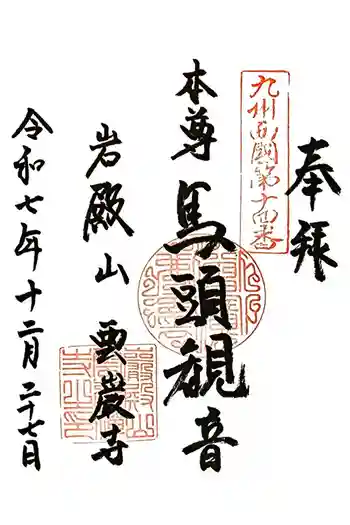 奉拝
九州西國第十四番
本尊 馬頭観音
岩殿山 雲巌寺
令和七年十二月二十七日